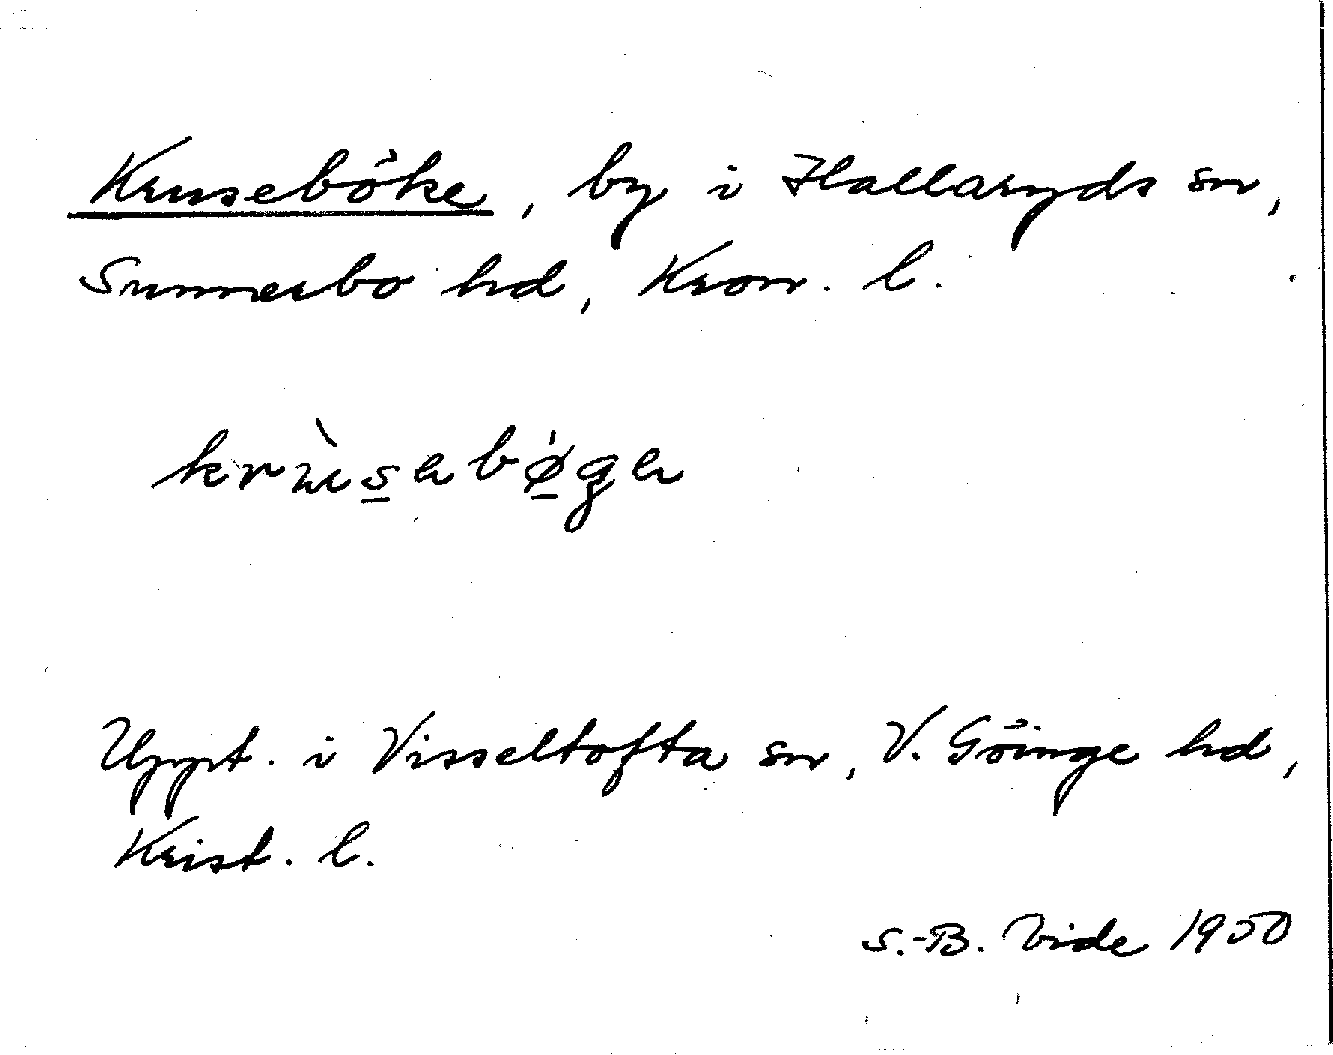 Kruseböke, by i Hallaryds sn,
Sunnerbo hd, Kron. l.
krùsabø̀ga
Uppt. i Visseltofta sn, V. Göinge hd,
Krist. l.
S.-B. Vide 1950